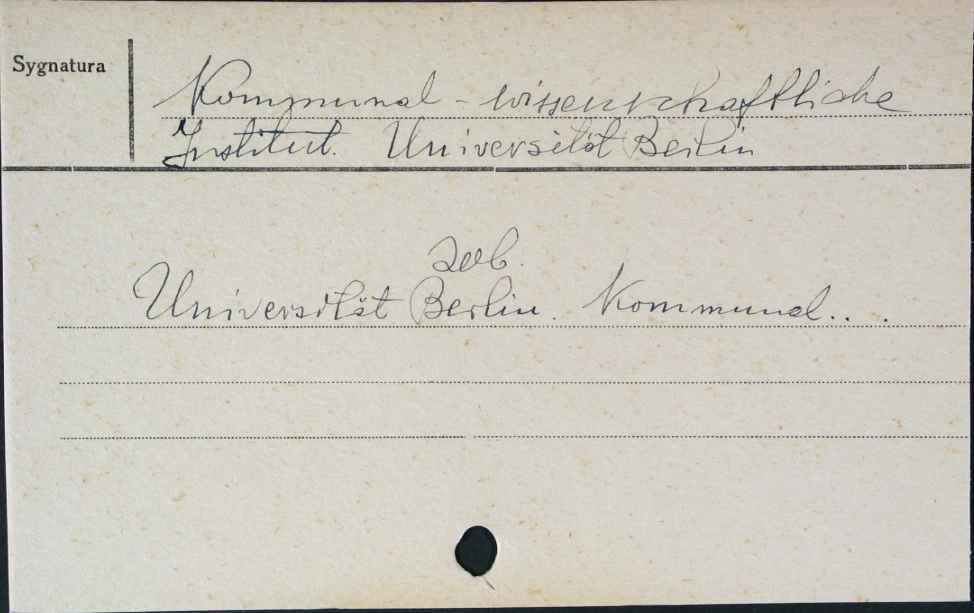 Sygnatura
Kommunal-wissenschaftliche
Institut. Universität Berlin
zob.
Universität Berlin. Kommunal...